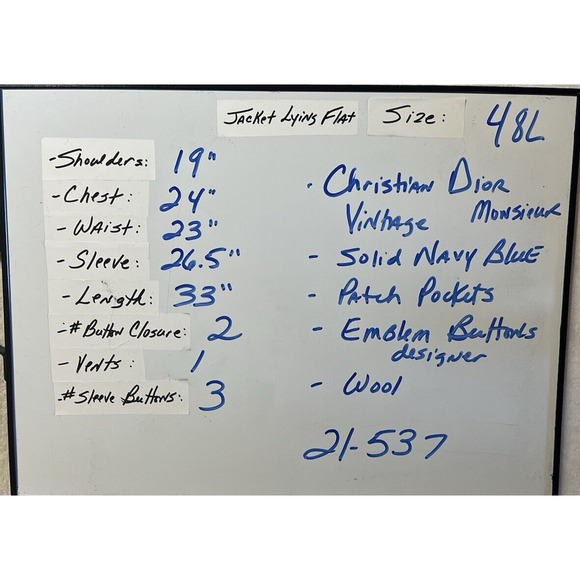 Jacket Lying Flat
Size: 48L
- Shoulders: 19"
- Chest: 24"
- Waist: 23"
- Sleeve: 26.5"
- Length: 33"
- # Button Closure: 2
- Vents: 1
# Sleeve Buttons: 3
- Christian Dior
Vintage Monsieur
- Solid Navy Blue
- Patch Pockets
- Emblem Buttons
designer
- Wool
21-537